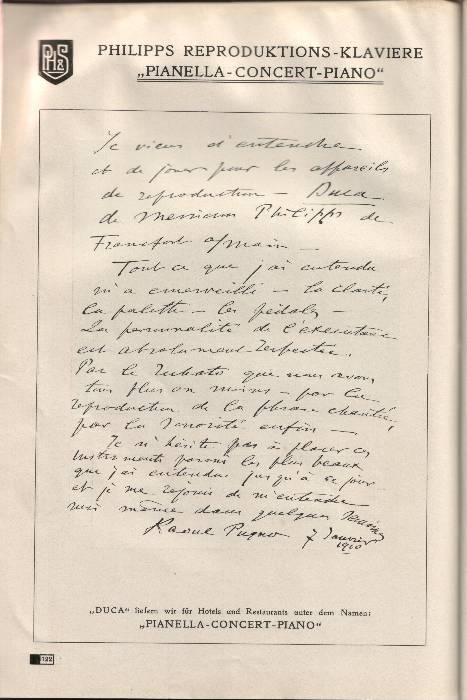 PH&S
PHILIPPS REPRODUKTIONS-KLAVIERE
„PIANELLA-CONCERT-PIANO“
Je viens d'entendre
et de jouer pour les appareils
de reproduction — Duca
de Messieurs Philipps de
Francfort a/Main —
Tout ce que j'ai entendu
m'a emerveillé — la clarté,
la palette — les pédales —
La personnalité de l'exécutant
est absolument respectée,
Par le Rubato que nous avons
tous plus ou moins — par la
reproduction de la phrase chantée,
par la sonorité enfin —
Je n'hésite pas à placer ces
instruments parmi les plus beaux
que j'ai entendus jusqu'à ce jour
et je me réjouis de m'entendre
moi même dans quelques semaines
Raoul Pugno 7 Janvier
1910
„DUCA“ liefern wir für Hotels und Restaurants unter dem Namen:
„PIANELLA-CONCERT-PIANO“
122